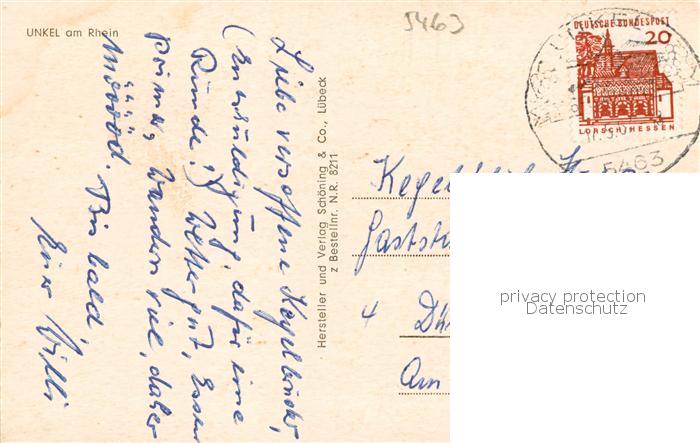 UNKEL am Rhein
5463
DEUTSCHE BUNDESPOST
20
LORSCH/HESSEN
5463
Liebe versoffene Kegelbrüder,
(Entschuldigung, dafür eine
Runde!) Wetter gut, Essen
prima, Wandern viel, daher
müüüd. Bis bald,
Euer Willi
Hersteller und Verlag Schöning & Co., Lübeck
z Bestellnr. N.R. 8211
4
Am
privacy protection
Datenschutz